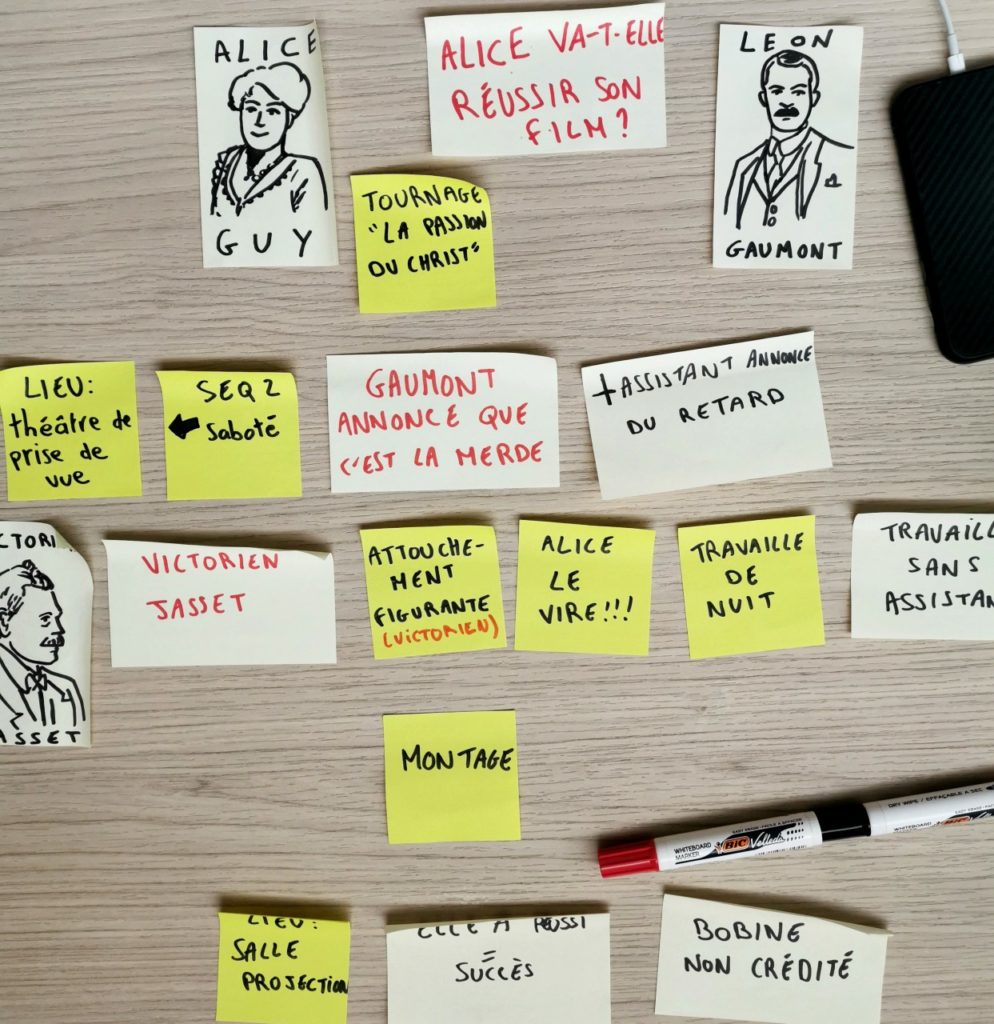 ALICE
GUY
ALICE VA-T-ELLE
RÉUSSIR SON
FILM?
LEON
GAUMONT
TOURNAGE
"LA PASSION
DU CHRIST"
LIEU:
théâtre de
prise de
vue
SEQ 2
Saboté
GAUMONT
ANNONCE QUE
C'EST LA MERDE
+ ASSISTANT ANNONCE
DU RETARD
CTORI
ASSET
VICTORIEN
JASSET
ATTOUCHE-
MENT
FIGURANTE
(VICTORIEN)
ALICE
LE
VIRE!!!
TRAVAILLE
DE
NUIT
TRAVAILL
SANS
ASSISTAN
MONTAGE
DRY WIPE / EFFAÇABLE A SEC
WHITEBOARD
MARKER
BIC Velleda
WHITEBOARD
LIEU:
SALLE
PROJECTION
ELLE A RÉUSSI
=
SUCCÈS
BOBINE
NON CRÉDITÉ